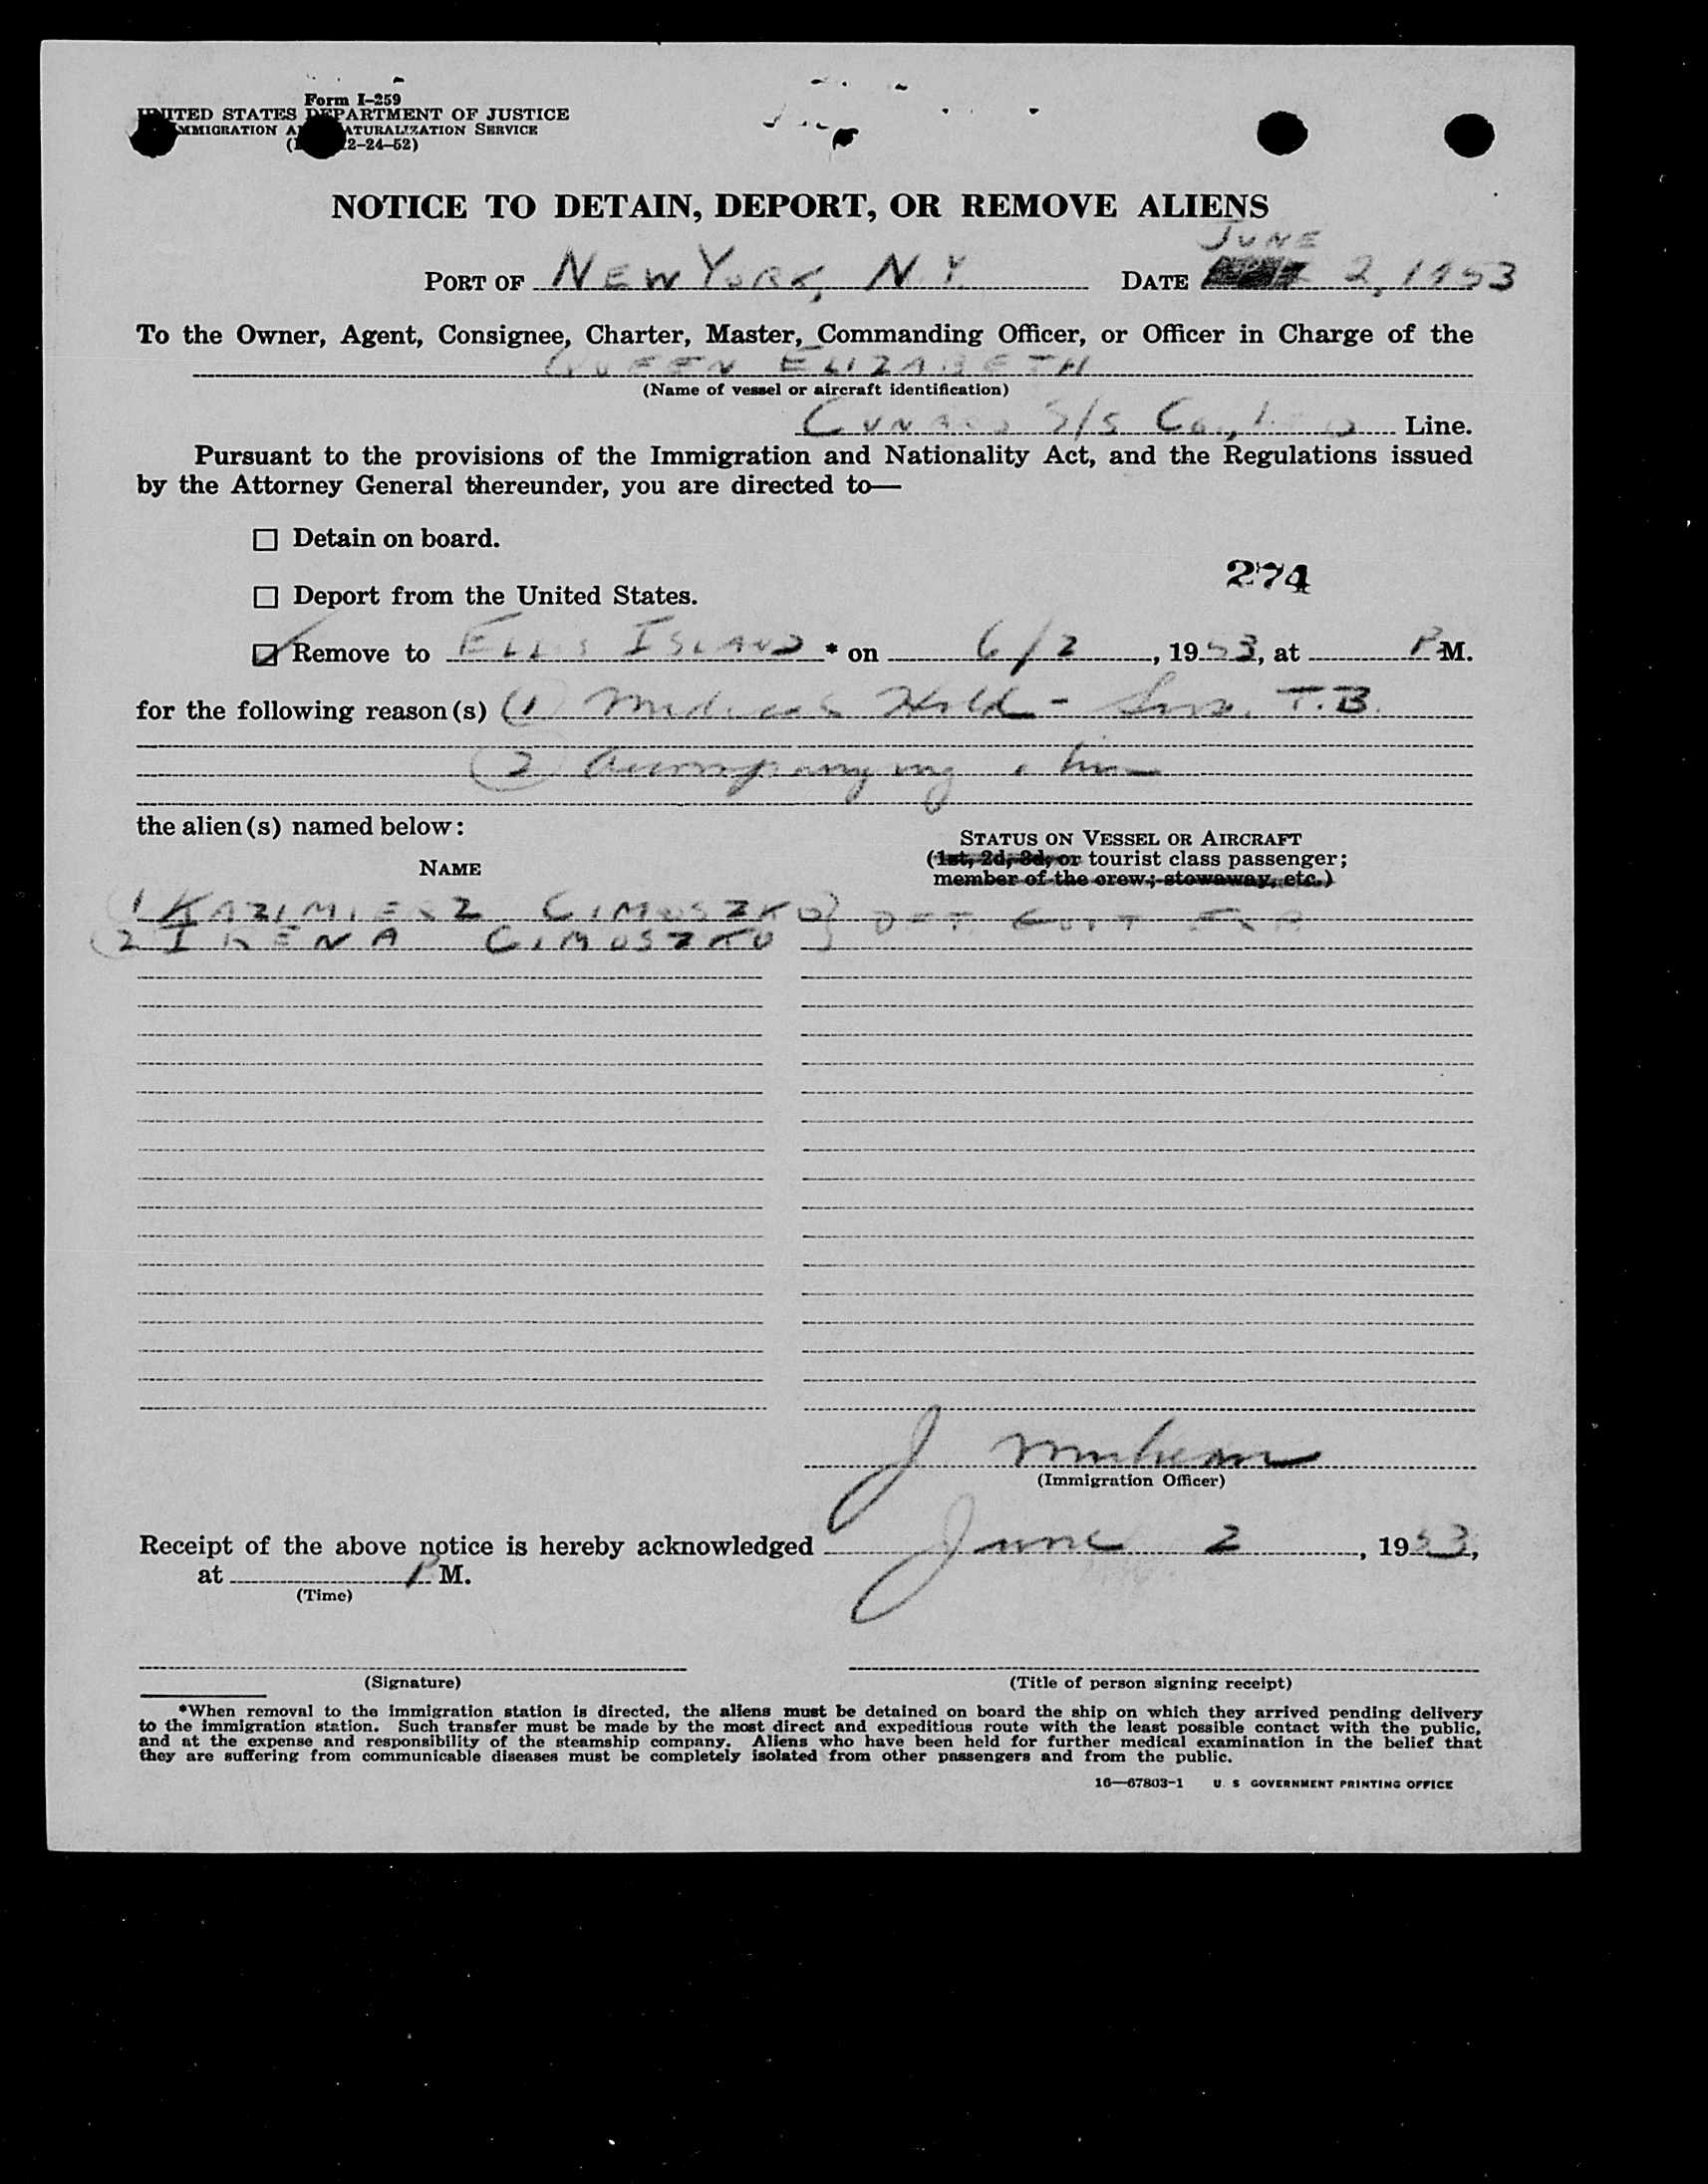 Form I-259
UNITED STATES DEPARTMENT OF JUSTICE
IMMIGRATION AND NATURALIZATION SERVICE
2-24-52)
NOTICE TO DETAIN, DEPORT, OR REMOVE ALIENS
PORT OF NEW YORK, N.Y. DATE JUNE 2, 1953
To the Owner, Agent, Consignee, Charter, Master, Commanding Officer, or Officer in Charge of the
QUEEN ELIZABETH
(Name of vessel or aircraft identification)
CUNARD S/S Co., LTD Line.
Pursuant to the provisions of the Immigration and Nationality Act, and the Regulations issued
by the Attorney General thereunder, you are directed to—
☐ Detain on board.
274
☐ Deport from the United States.
☑ Remove to ELLIS ISLAND * on 6/2, 1953, at P M.
for the following reason(s) (1) Medical Hold - T.B.
(2) Accompanying
the alien(s) named below:
STATUS ON VESSEL OR AIRCRAFT
(1st, 2d, 3d, or tourist class passenger;
NAME
member of the crew; stowaway, etc.)
1 KAZIMIERZ CIMOSZKO
2 IRENA CIMOSZKO } DET. GOVT EXP
J
(Immigration Officer)
Receipt of the above notice is hereby acknowledged June 2, 1953,
at P M.
(Time)
(Signature) (Title of person signing receipt)
*When removal to the immigration station is directed, the aliens must be detained on board the ship on which they arrived pending delivery
to the immigration station. Such transfer must be made by the most direct and expeditious route with the least possible contact with the public,
and at the expense and responsibility of the steamship company. Aliens who have been held for further medical examination in the belief that
they are suffering from communicable diseases must be completely isolated from other passengers and from the public.
16—67803-1 U. S. GOVERNMENT PRINTING OFFICE